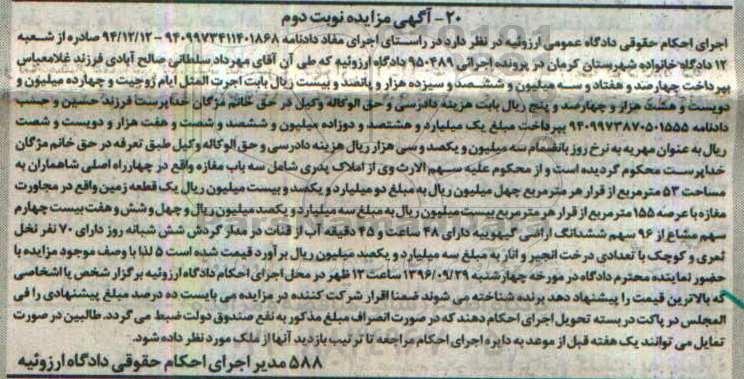 ۲۰- آگهی مزایده نوبت دوم
اجرای احکام حقوقی دادگاه عمومی ارزوئیه در نظر دارد در راستای اجرای مفاد دادنامه ۹۴۰۹۹۷۳۴۱۱۴۰۱۸۶۸ - ۹۴/۱۲/۱۲ صادره از شعبه
۱۲ دادگاه خانواده شهرستان کرمان در پرونده اجرائی ۹۵۰۴۸۹ دادگاه ارزوئیه که طی آن آقای مهرداد سلطانی صالح آبادی فرزند غلامعباس
بپرداخت چهارصد و هفتاد و سه میلیون و ششصد و سیزده هزار و پانصد و بیست ریال بابت اجرت المثل ایام زوجیت و چهارده میلیون و
دویست و هشت هزار و چهارصد و پنج ریال بابت هزینه دادرسی و حق الوکاله وکیل در حق خانم مژگان خداپرست فرزند حسین و حسب
دادنامه ۹۴۰۹۹۷۳۸۷۰۵۰۱۵۵۵ بپرداخت مبلغ یک میلیارد و هشتصد و دوازده میلیون و ششصد و شصت و هفت هزار و دویست و شصت
ریال به عنوان مهریه به نرخ روز بانضمام سه میلیون و یکصد و سی هزار ریال هزینه دادرسی و حق الوکاله وکیل طبق تعرفه در حق خانم مژگان
خداپرست محکوم گردیده است و از محکوم علیه سهم الارث وی از املاک پدری شامل سه باب مغازه واقع در چهارراه اصلی شاهماران به
مساحت ۵۳ مترمربع از قرار هر مترمربع چهل میلیون ریال به مبلغ دو میلیارد و یکصد و بیست میلیون ریال یک قطعه زمین واقع در مجاورت
مغازه با عرصه ۱۵۵ مترمربع از قرار هر مترمربع بیست میلیون ریال به مبلغ سه میلیارد و یکصد میلیون ریال و چهل و شش و هفت بیست چهارم
سهم مشاع از ۹۶ سهم ششدانگ اراضی گیهوییه دارای ۴۸ ساعت و ۴۵ دقیقه آب از قنات در مدار گردش شش شبانه روز دارای ۷۰ نفر نخل
ثمری و کوچک با تعدادی درخت انجیر و انار به مبلغ سه میلیارد و یکصد میلیون ریال برآورد قیمت شده است ۵ لذا با وصف موجود مزایده با
حضور نماینده محترم دادگاه در مورخه چهارشنبه ۱۳۹۶/۰۹/۲۹ ساعت ۱۲ ظهر در محل اجرای احکام دادگاه ارزوئیه برگزار شخص یا اشخاصی
که بالاترین قیمت را پیشنهاد دهد برنده شناخته می شوند ضمنا افراد شرکت کننده در مزایده می بایست ده درصد مبلغ پیشنهادی را فی
المجلس در پاکت در بسته تحویل اجرای احکام دهند که در صورت انصراف مبلغ مذکور به نفع صندوق دولت ضبط می گردد. طالبین در صورت
تمایل می توانند یک هفته قبل از موعد به دایره اجرای احکام مراجعه تا ترتیب بازدید آنها از ملک مورد نظر داده شود.
۵۸۸ مدیر اجرای احکام حقوقی دادگاه ارزوئیه